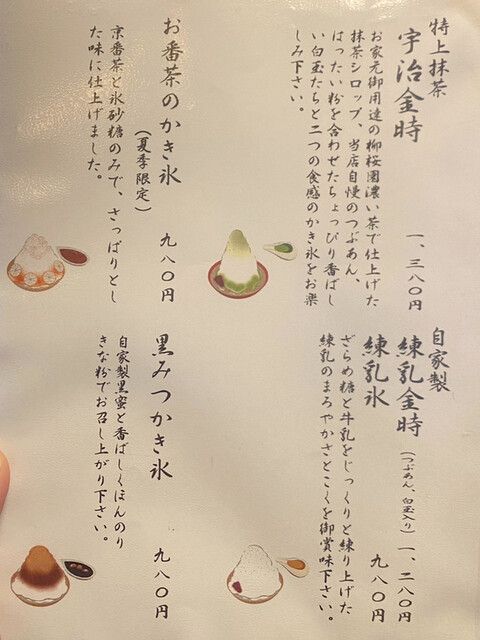 特上抹茶
宇治金時
一、三八〇円
お家元御用達の柳桜園濃い茶で仕上げた
抹茶シロップ、当店自慢のつぶあん、
はったい粉を合わせたちょっぴり香ばし
い白玉たちと二つの食感のかき氷をお楽
しみ下さい。
お番茶のかき氷
(夏季限定)
九八〇円
京番茶と氷砂糖のみで、さっぱりとし
た味に仕上げました。
自家製
練乳金時
(つぶあん、白玉入り)
一、二八〇円
練乳氷
九八〇円
ざらめ糖と牛乳をじっくりと練り上げた
練乳のまろやかさとこくを御賞味下さい。
黒みつかき氷
九八〇円
自家製黒蜜と香ばしくほんのり
きな粉でお召し上がり下さい。